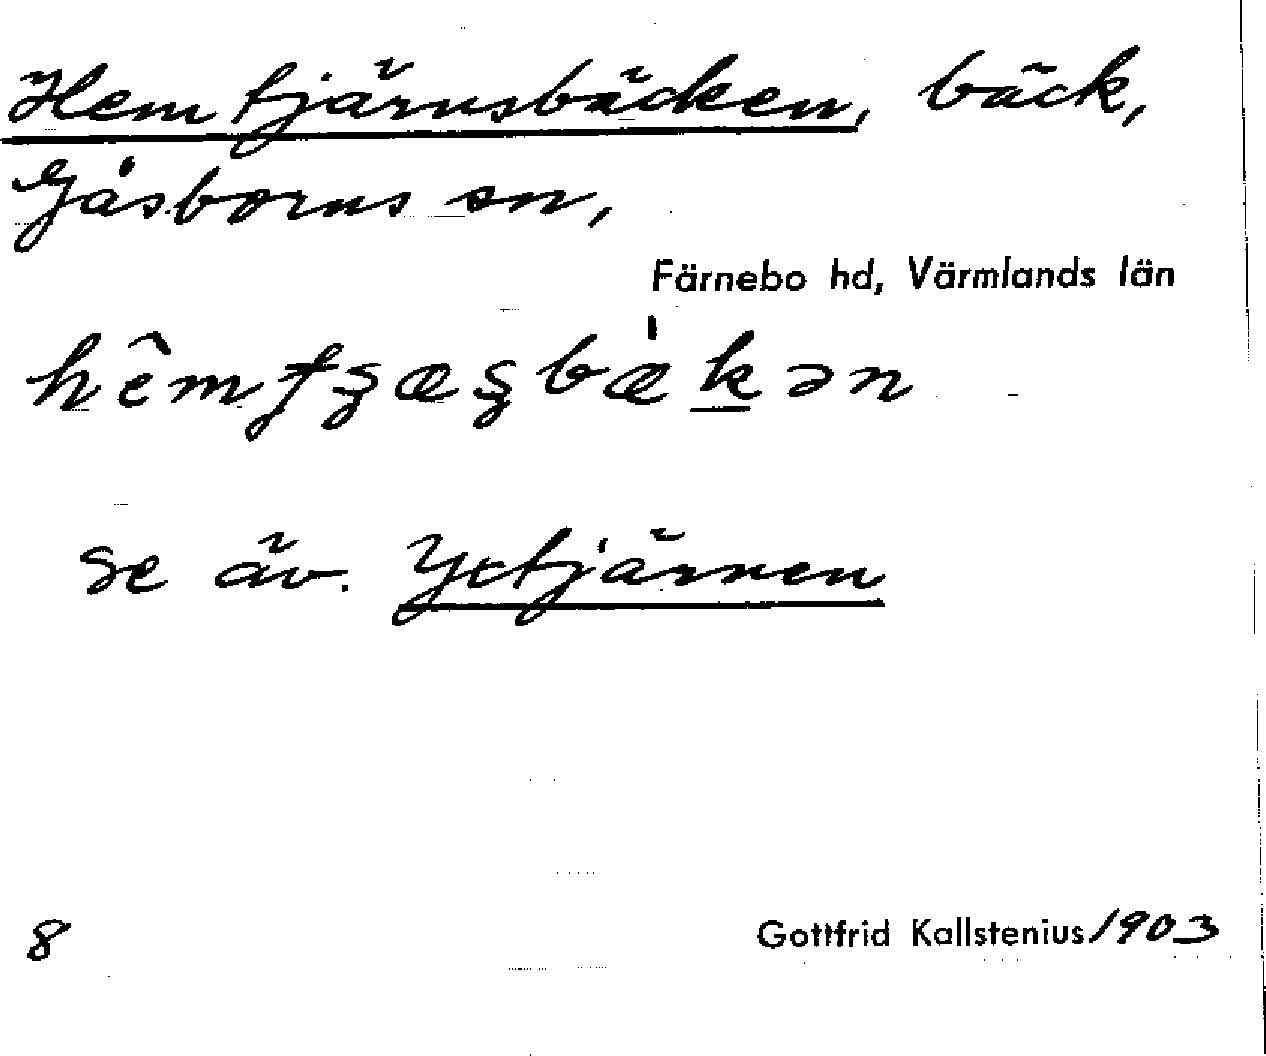 Hemtjärnsbäcken, bäck,
Gåsborns sn,
Färnebo hd, Värmlands län
se äv. Yttjärnen
8
Gottfrid Kallstenius 1903